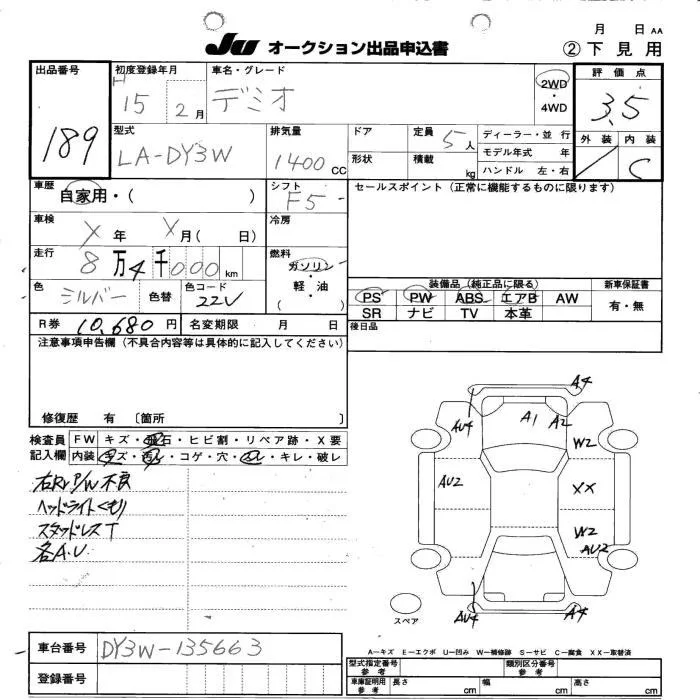 JU オークション出品申込書
月 日 AA
② 下見用
出品番号
189
初度登録年月
15 2月
車名・グレード
デミオ
2WD
・
4WD
評価点
3.5
型式
LA-DY3W
排気量
1400 CC
ドア
定員 5人
ディーラー・並行
モデル年式 年
形状
積載 kg
ハンドル 左・右
外装 内装
／ C
車歴
自家用・( )
シフト
F5
セールスポイント(正常に機能するものに限ります)
車検
X年 X月( 日)
冷房
走行
8万4千000km
燃料
ガソリン
・
軽・油
( )
色
シルバー
色替
色コード
22V
装備品(純正品に限る)
新車保証書
PS PW ABS エアB AW
SR ナビ TV 本革
有・無
R券 10,680円
名変期限 月 日
後日品
注意事項申告欄(不具合内容等は具体的に記入してください)
修復歴 有 〔箇所 〕
検査員 FW キズ・飛石・ヒビ割・リペア跡・X要
記入欄 内装 キズ・汚れ・コゲ・穴・スレ・キレ・破レ
右RrP/W不良
ヘッドライトくもり
スタッドレスT
各A.U
A4
AU4
A1 A2
W2
AU2
XX
W2
AU2
AU4
A4
スペア
車台番号 DY3W-135663
登録番号
A－キズ E－エクボ U－凹み W－補修跡 S－サビ C－腐食 XX－取替済
型式指定番号
参考
類別区分番号
参考
車庫証明用
参考
長さ cm 幅 cm 高さ cm